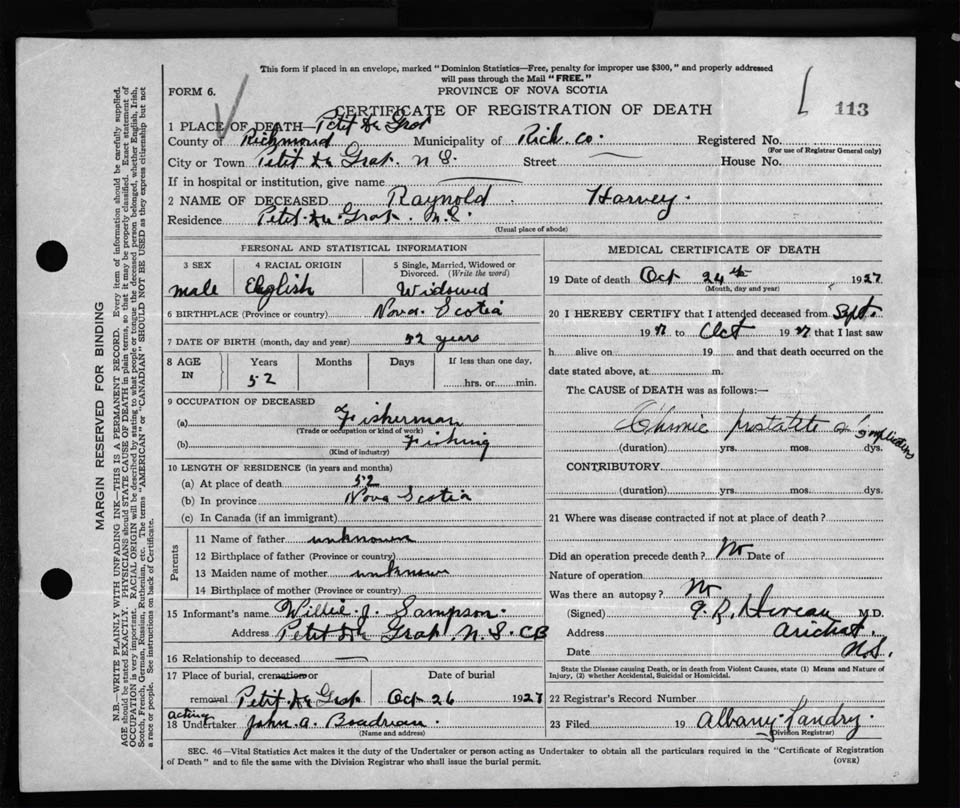 This form if placed in an envelope, marked "Dominion Statistics—Free, penalty for improper use $300," and properly addressed
will pass through the Mail "FREE."
FORM 6.
PROVINCE OF NOVA SCOTIA
CERTIFICATE OF REGISTRATION OF DEATH
113
1 PLACE OF DEATH—Petit de Grat
County of Richmond Municipality of Rich. Co. Registered No.
(For use of Registrar General only)
City or Town Petit de Grat. N.S. Street House No.
If in hospital or institution, give name
2 NAME OF DECEASED Raynold Harvey.
Residence Petit de Grat. N.S.
(Usual place of abode)
PERSONAL AND STATISTICAL INFORMATION
3 SEX 4 RACIAL ORIGIN 5 Single, Married, Widowed or Divorced. (Write the word)
male English Widowed
6 BIRTHPLACE (Province or country) Nova Scotia
7 DATE OF BIRTH (month, day and year) 52 years
8 AGE IN Years Months Days If less than one day,
52 hrs. or min.
9 OCCUPATION OF DECEASED
(a) Fisherman
(Trade or occupation or kind of work)
(b) Fishing
(Kind of industry)
10 LENGTH OF RESIDENCE (in years and months)
(a) At place of death 52
(b) In province Nova Scotia
(c) In Canada (if an immigrant)
Parents
11 Name of father unknown
12 Birthplace of father (Province or country)
13 Maiden name of mother unknown
14 Birthplace of mother (Province or country)
15 Informant's name Willie J. Sampson.
Address Petit de Grat N.S. CB
16 Relationship to deceased
17 Place of burial, cremation or Date of burial
removal Petit de Grat Oct 26 1927
acting
18 Undertaker John A. Boudreau.
(Name and address)
MEDICAL CERTIFICATE OF DEATH
19 Date of death Oct 24th 1927
(Month, day and year)
20 I HEREBY CERTIFY that I attended deceased from Sept.
1927 to Oct 1927 that I last saw
h alive on 19 and that death occurred on the
date stated above, at m.
The CAUSE of DEATH was as follows:—
Chronic
(duration) yrs. mos. dys.
CONTRIBUTORY
(duration) yrs. mos. dys.
21 Where was disease contracted if not at place of death?
Did an operation precede death? No Date of
Nature of operation
Was there an autopsy? No
(Signed) M.D.
Address Arichat.
Date N.S.
State the Disease causing Death, or in death from Violent Causes, state (1) Means and Nature of
Injury, (2) whether Accidental, Suicidal or Homicidal.
22 Registrar's Record Number
23 Filed 19 Albany Landry.
(Division Registrar)
SEC. 46—Vital Statistics Act makes it the duty of the Undertaker or person acting as Undertaker to obtain all the particulars required in the "Certificate of Registration
of Death" and to file the same with the Division Registrar who shall issue the burial permit.
(OVER)
MARGIN RESERVED FOR BINDING
N.B.—WRITE PLAINLY WITH UNFADING INK—THIS IS A PERMANENT RECORD. Every item of information should be carefully supplied.
AGE should be stated EXACTLY. PHYSICIANS should STATE CAUSE OF DEATH in plain terms, so that it may be properly classified. Exact statement of
OCCUPATION is very important. RACIAL ORIGIN will be described by stating to what people or tongue the deceased person belonged, whether English, Irish,
Scotch, French, German, Russian, Ruthenian, etc. The terms "AMERICAN" or "CANADIAN" SHOULD NOT BE USED as they express citizenship but not
a race or people. See instructions on back of Certificate.